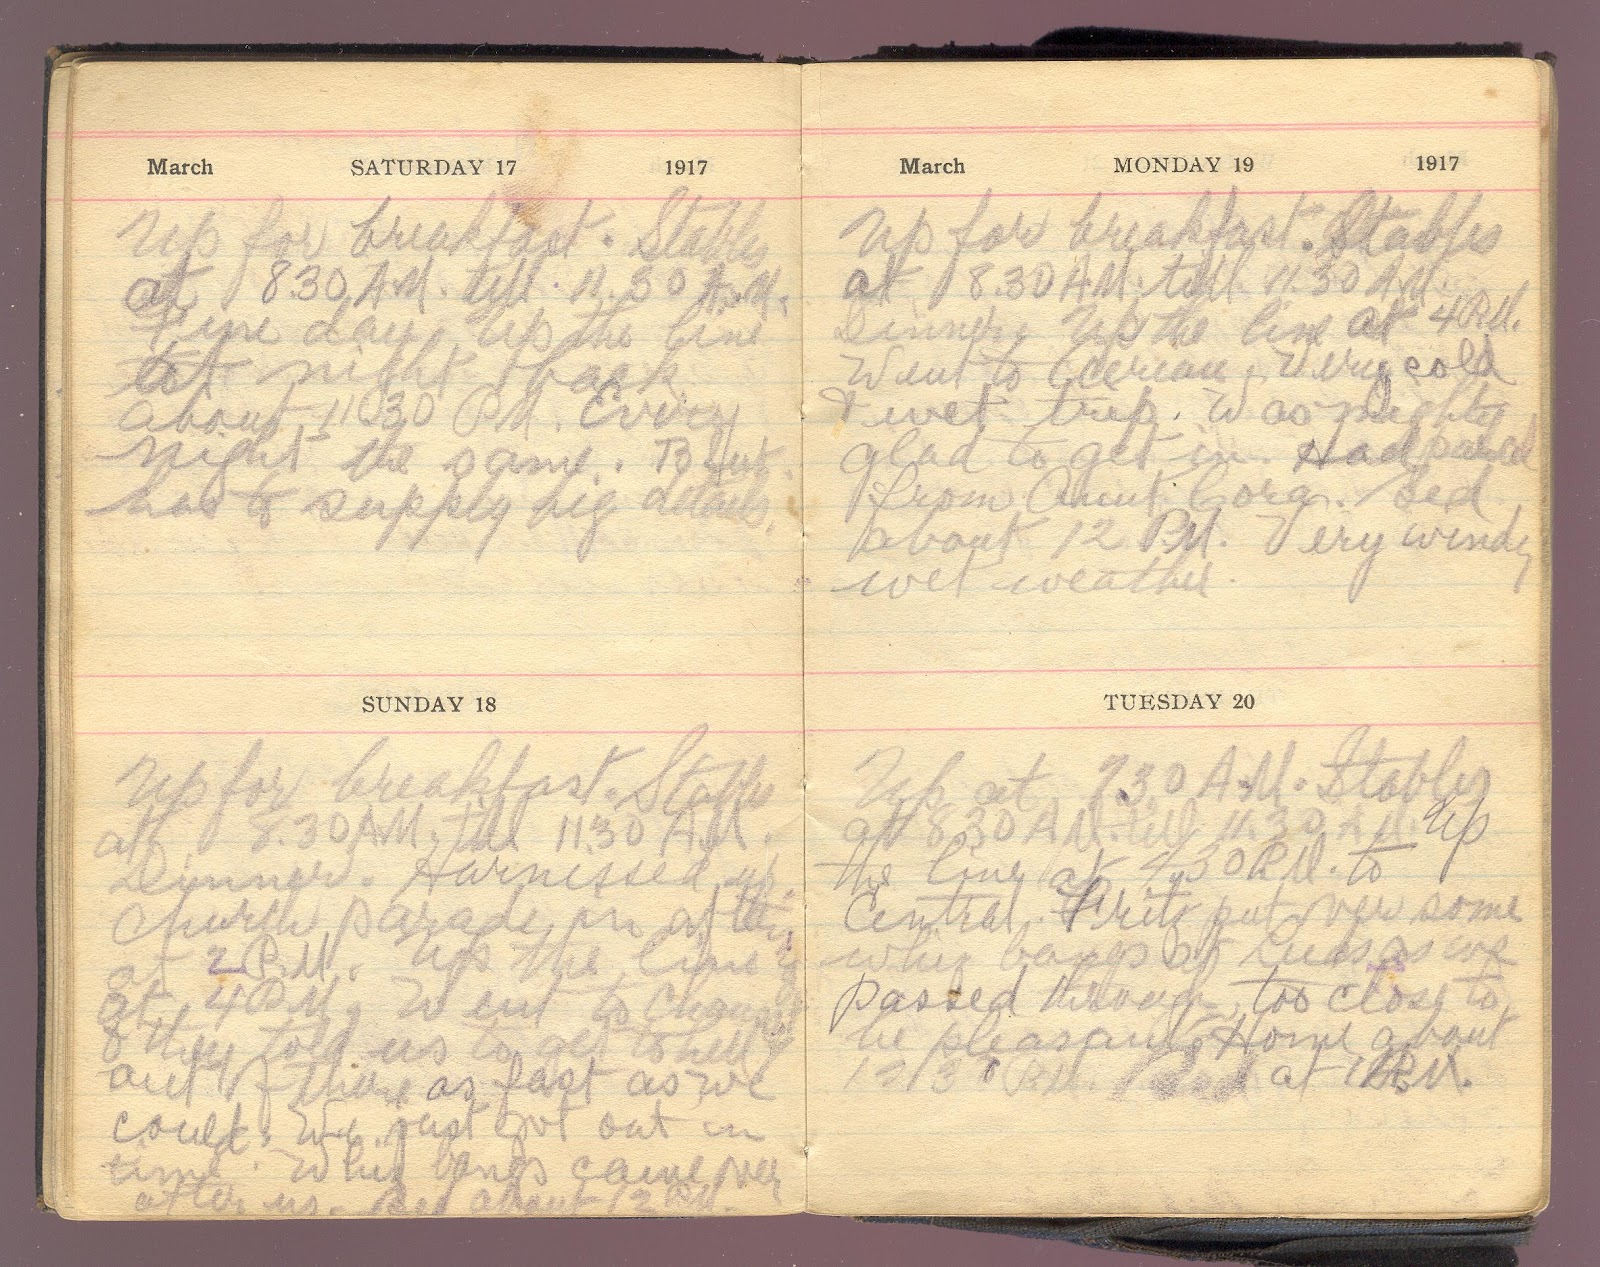 March SATURDAY 17 1917
Up for breakfast. Stables
at 8.30 A.M. till 11.30 A.M.
Fine day. Up the line
to night back
about 11.30 P.M. Every
night the same. B Sub.
has to supply big details.
SUNDAY 18
Up for breakfast. Stables
at 8.30 A.M. till 11.30 A.M.
Dinner. Harnessed up.
Church parade in after
at 2 P.M. Up the line
at 4 P.M. Went to
& they told us to get to hell
out of there as fast as we
could. We just got out in
time. Whiz bangs came over
after us. Bed about 12 P.M.
March MONDAY 19 1917
Up for breakfast. Stables
at 8.30 A.M. till 11.30 A.M.
Dinner. Up the line at 4 P.M.
Went to Very cold
& wet trip. Was mighty
glad to get in. Had parcel
from Aunt Cora. Bed
about 12 P.M. Very windy
wet weather.
TUESDAY 20
Up at 7.30 A.M. Stables
at 8.30 A.M. till 11.30 A.M. Up
the line at 4.30 P.M. to
Central. Fritz put over some
whiz bangs at us as we
passed through, too close to
be pleasant. Home about
12.30 P.M. Bed at 1 P.M.